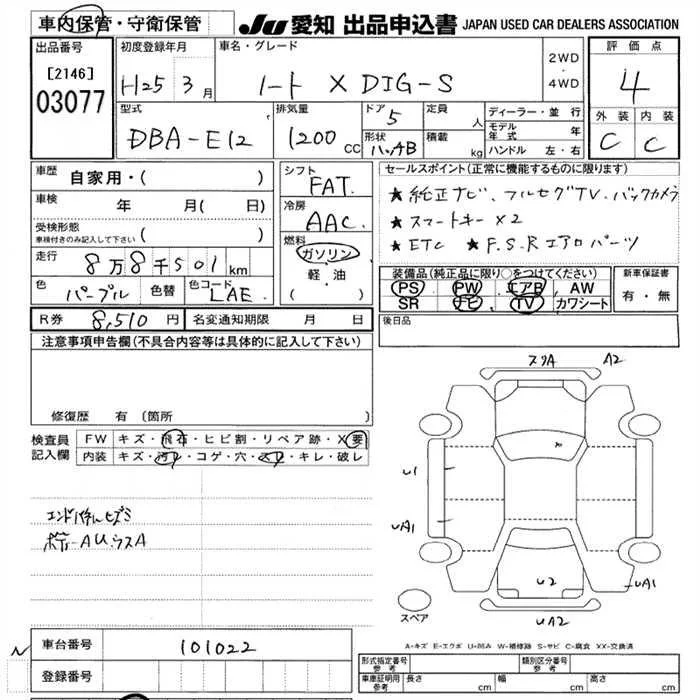 車内保管・守衛保管
JU 愛知 出品申込書 JAPAN USED CAR DEALERS ASSOCIATION
出品番号
[2146]
03077
初度登録年月
H25 3月
車名・グレード
ノート X DIG-S
2WD
・
4WD
評価点
4
外装 内装
C C
型式
DBA-E12
排気量
1200 CC
ドア
5
形状
ハ、AB
定員
人
積載
kg
ディーラー・並行
モデル年式 年
ハンドル 左・右
車歴 自家用・( )
車検 年 月( 日)
受検形態
車検付きのみ記入して下さい ( )
走行 8万8千501km
色 パープル 色替 色コード LAE
シフト
FAT
冷房
AAC
燃料
ガソリン
軽・油
( )
セールスポイント(正常に機能するものに限ります)
★純正ナビ、フルセグTV、バックカメラ
★スマートキー×2
★ETC ★F.S.Rエアロパーツ
装備品(純正品に限り○をつけてください)
PS PW エアB AW
SR ナビ TV カワシート
新車保証書
有・無
R券 8,510円 名変通知期限 月 日
後日品
注意事項申告欄(不具合内容等は具体的に記入して下さい)
修復歴 有 〔箇所 〕
検査員記入欄
FW キズ・飛石・ヒビ割・リペア跡・X要
内装 キズ・汚レ・コゲ・穴・スレ・キレ・破レ
エンドパネルヒズミ
ボディーAU、ウスA
スリA A2
U1
UA1
U2
UA1
UA2
スペア
A-キズ E-エクボ U-凹ミ W-補修跡 S-サビ C-腐食 XX-交換済
車台番号 101022
登録番号
形式指定番号 参考
類別区分番号 参考
車庫証明用 参考 長さ cm 幅 cm 高さ cm